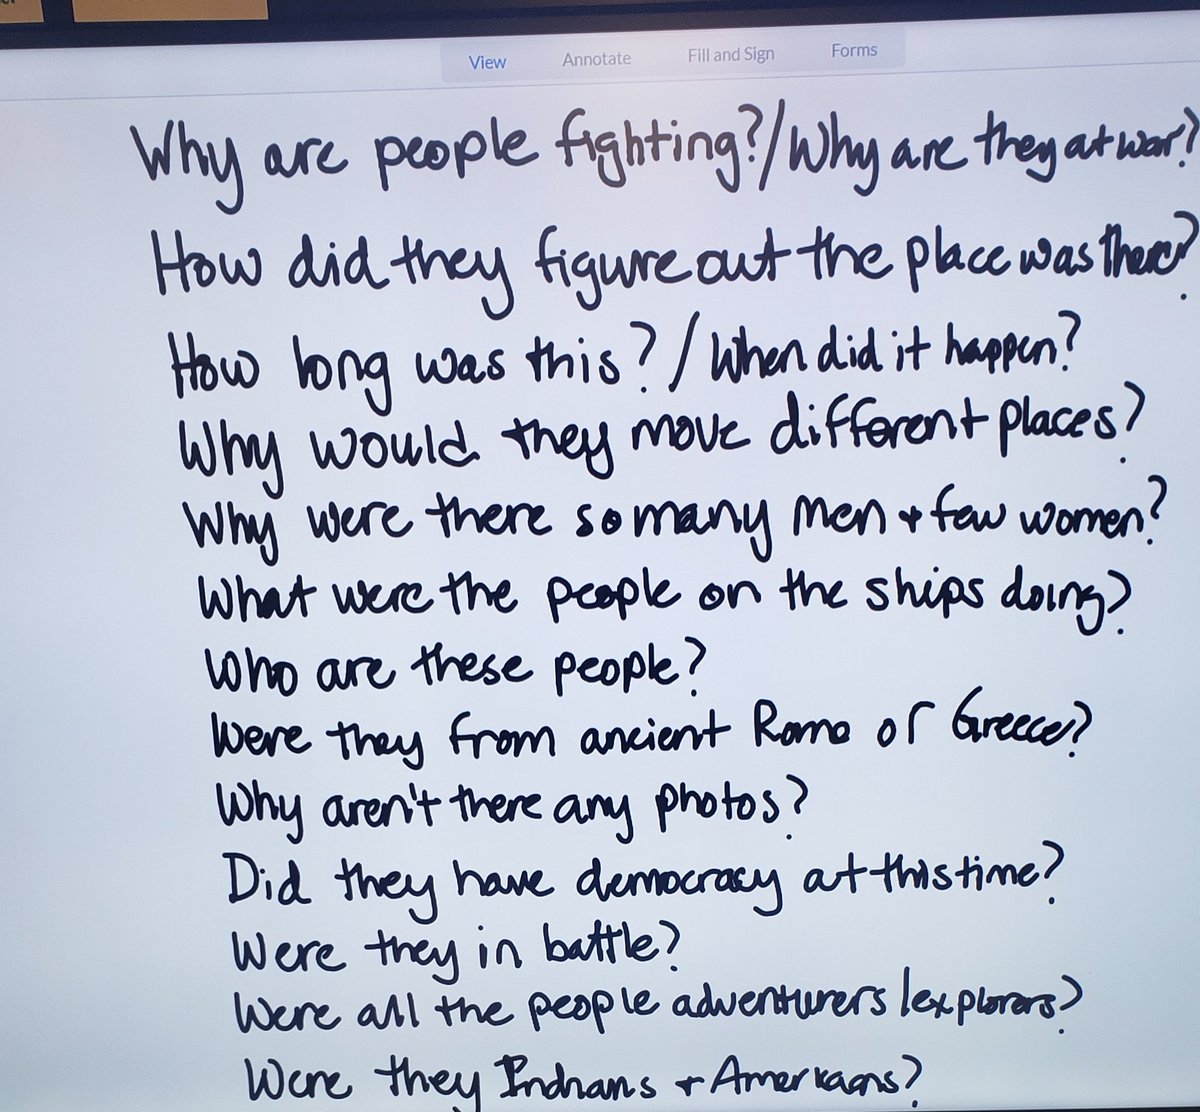 View Annotate Fill and Sign Forms
Why are people fighting?/Why are they at war?
How did they figure out the place was there?
How long was this?/When did it happen?
Why would they move different places?
Why were there so many men + few women?
What were the people on the ships doing?
Who are these people?
Were they from ancient Rome or Greece?
Why aren't there any photos?
Did they have democracy at this time?
Were they in battle?
Were all the people adventurers/explorers?
Were they Indians + Americans?